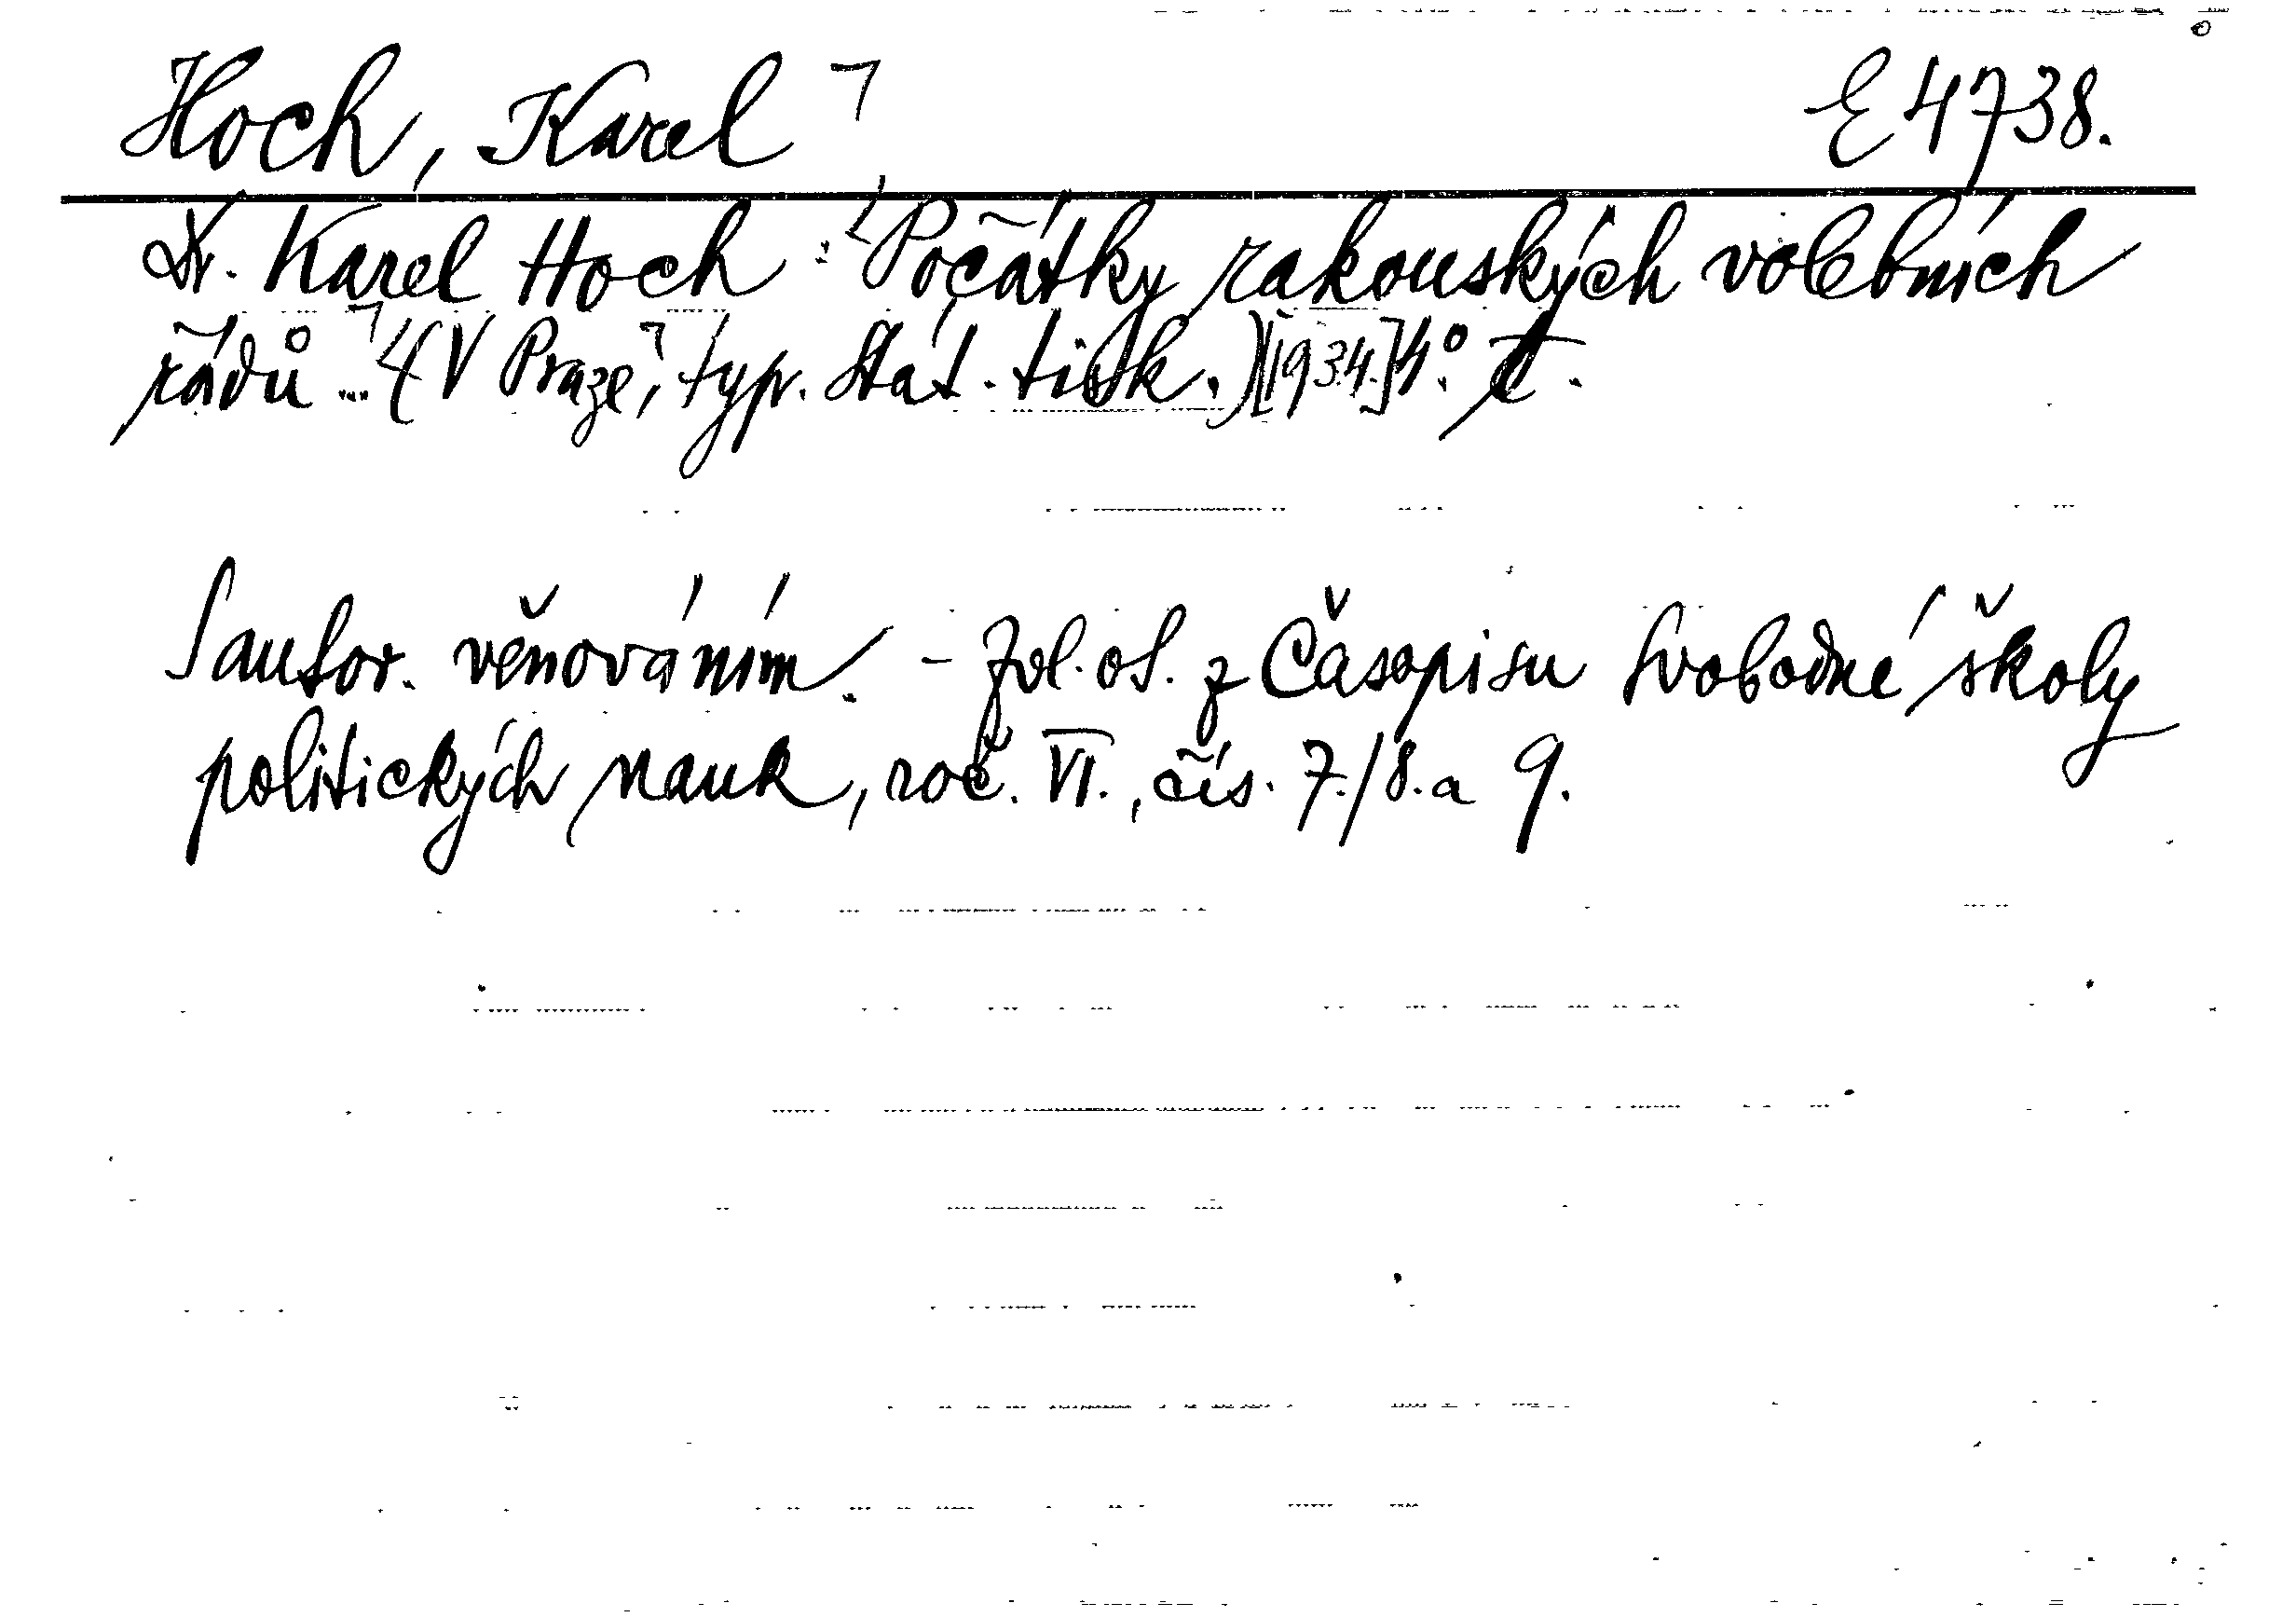 Hoch, Karel ㄱ E 4738.
Dr. Karel Hoch : Počátky rakouských volebních
řádů ... (V Praze, typ. Stát. tisk.) [1934.] 4°.
S autor. věnováním. - Zvl. ot. z Časopisu Svobodné školy
politických nauk, roč. VI., čís. 7./8. a 9.